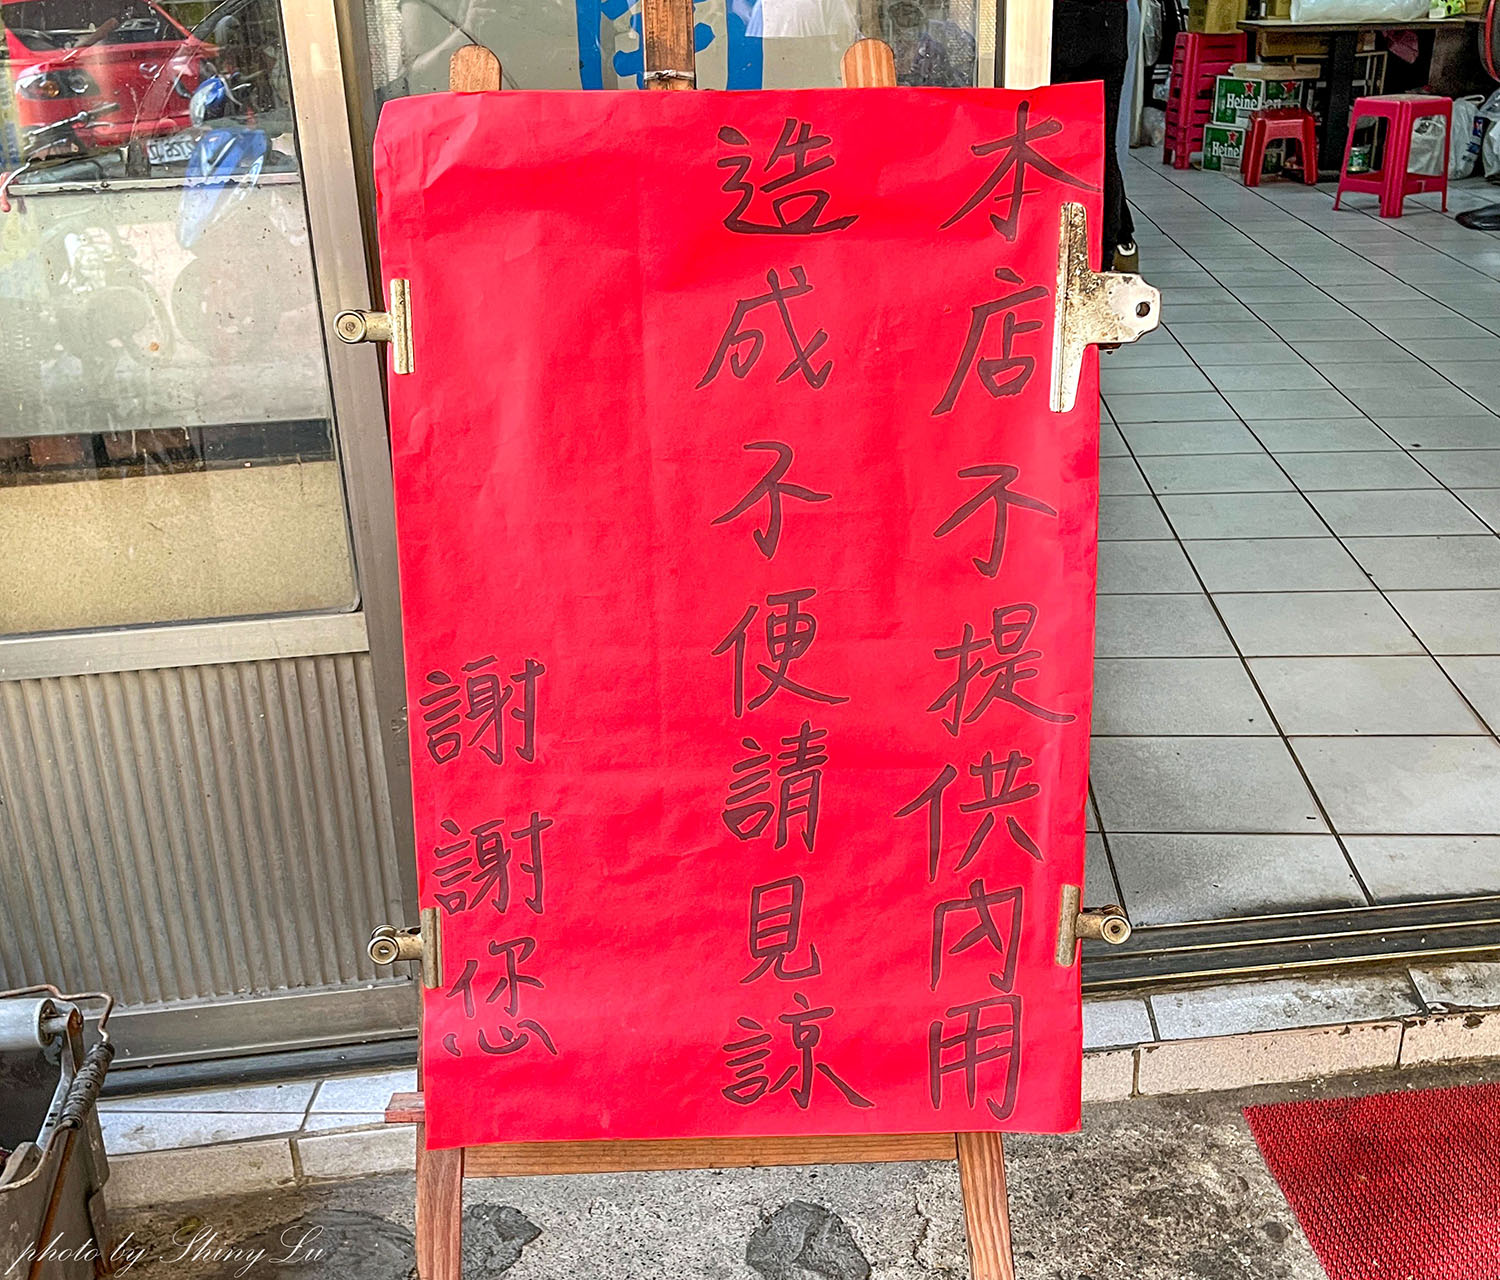 本店不提供內用
造成不便請見諒
謝謝您
Heineken
Heine
photo by Shiny Lu